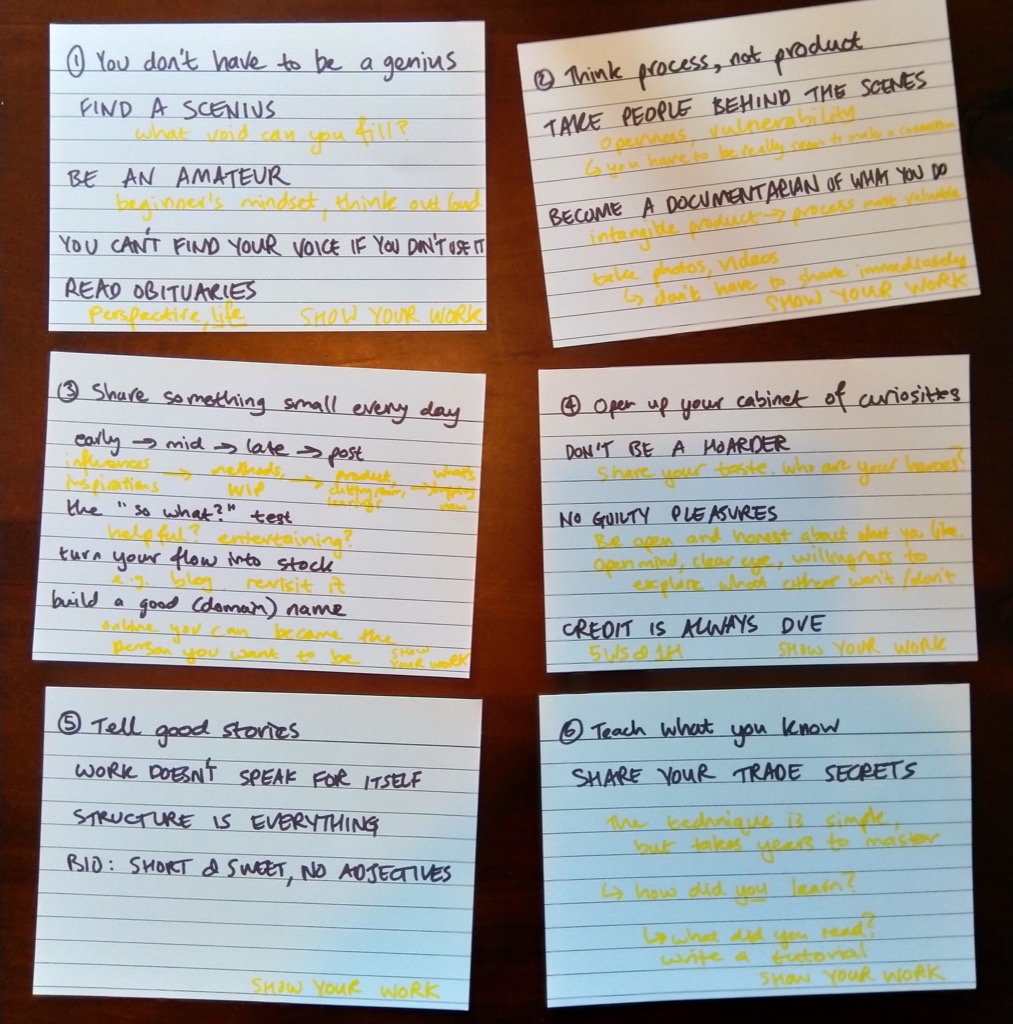 ① You don't have to be a genius
FIND A SCENIUS
what void can you fill?
BE AN AMATEUR
beginner's mindset, think out loud
YOU CAN'T FIND YOUR VOICE IF YOU DON'T USE IT
READ OBITUARIES
perspective, life SHOW YOUR WORK
② Think process, not product
TAKE PEOPLE BEHIND THE SCENES
openness, vulnerability
↳ you have to be really seen to make a connection
BECOME A DOCUMENTARIAN OF WHAT YOU DO
intangible product → process most valuable
take photos, videos
↳ don't have to share immediately
SHOW YOUR WORK
③ Share something small every day
early → mid → late → post
influences → methods, → product, → what's
inspirations WIP cutting room,
learnings now
the "so what?" test
helpful? entertaining?
turn your flow into stock
e.g. blog revisit it
build a good (domain) name
online you can become the
person you want to be SHOW
YOUR WORK
④ Open up your cabinet of curiosities
DON'T BE A HOARDER
Share your taste. Who are your heroes?
NO GUILTY PLEASURES
Be open and honest about what you like.
Open mind, clear eye, willingness to
explore what others won't/don't
CREDIT IS ALWAYS DUE
5Ws & 1H SHOW YOUR WORK
⑤ Tell good stories
WORK DOESN'T SPEAK FOR ITSELF
STRUCTURE IS EVERYTHING
BIO: SHORT & SWEET, NO ADJECTIVES
SHOW YOUR WORK
⑥ Teach what you know
SHARE YOUR TRADE SECRETS
The technique is simple,
but takes years to master
↳ how did you learn?
↳ what did you read?
write a tutorial
SHOW YOUR WORK